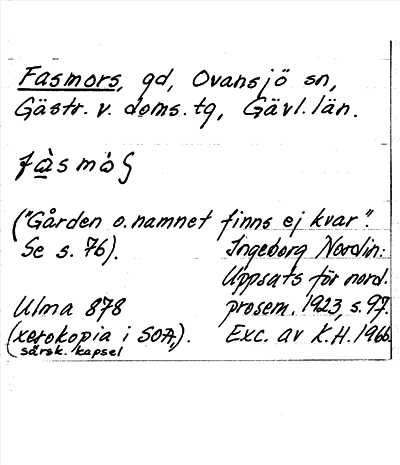 Fasmors, gd, Ovansjö sn,
Gästr. v. doms. tg, Gävl. län.
("Gården o. namnet finns ej kvar".
Se s. 76).
Ingeborg Nordin:
Uppsats för nord.
prosem. 1923, s. 97.
Exc. av K.H. 1966
Ulma 878
(xerokopia i SOA,).
särsk. kapsel